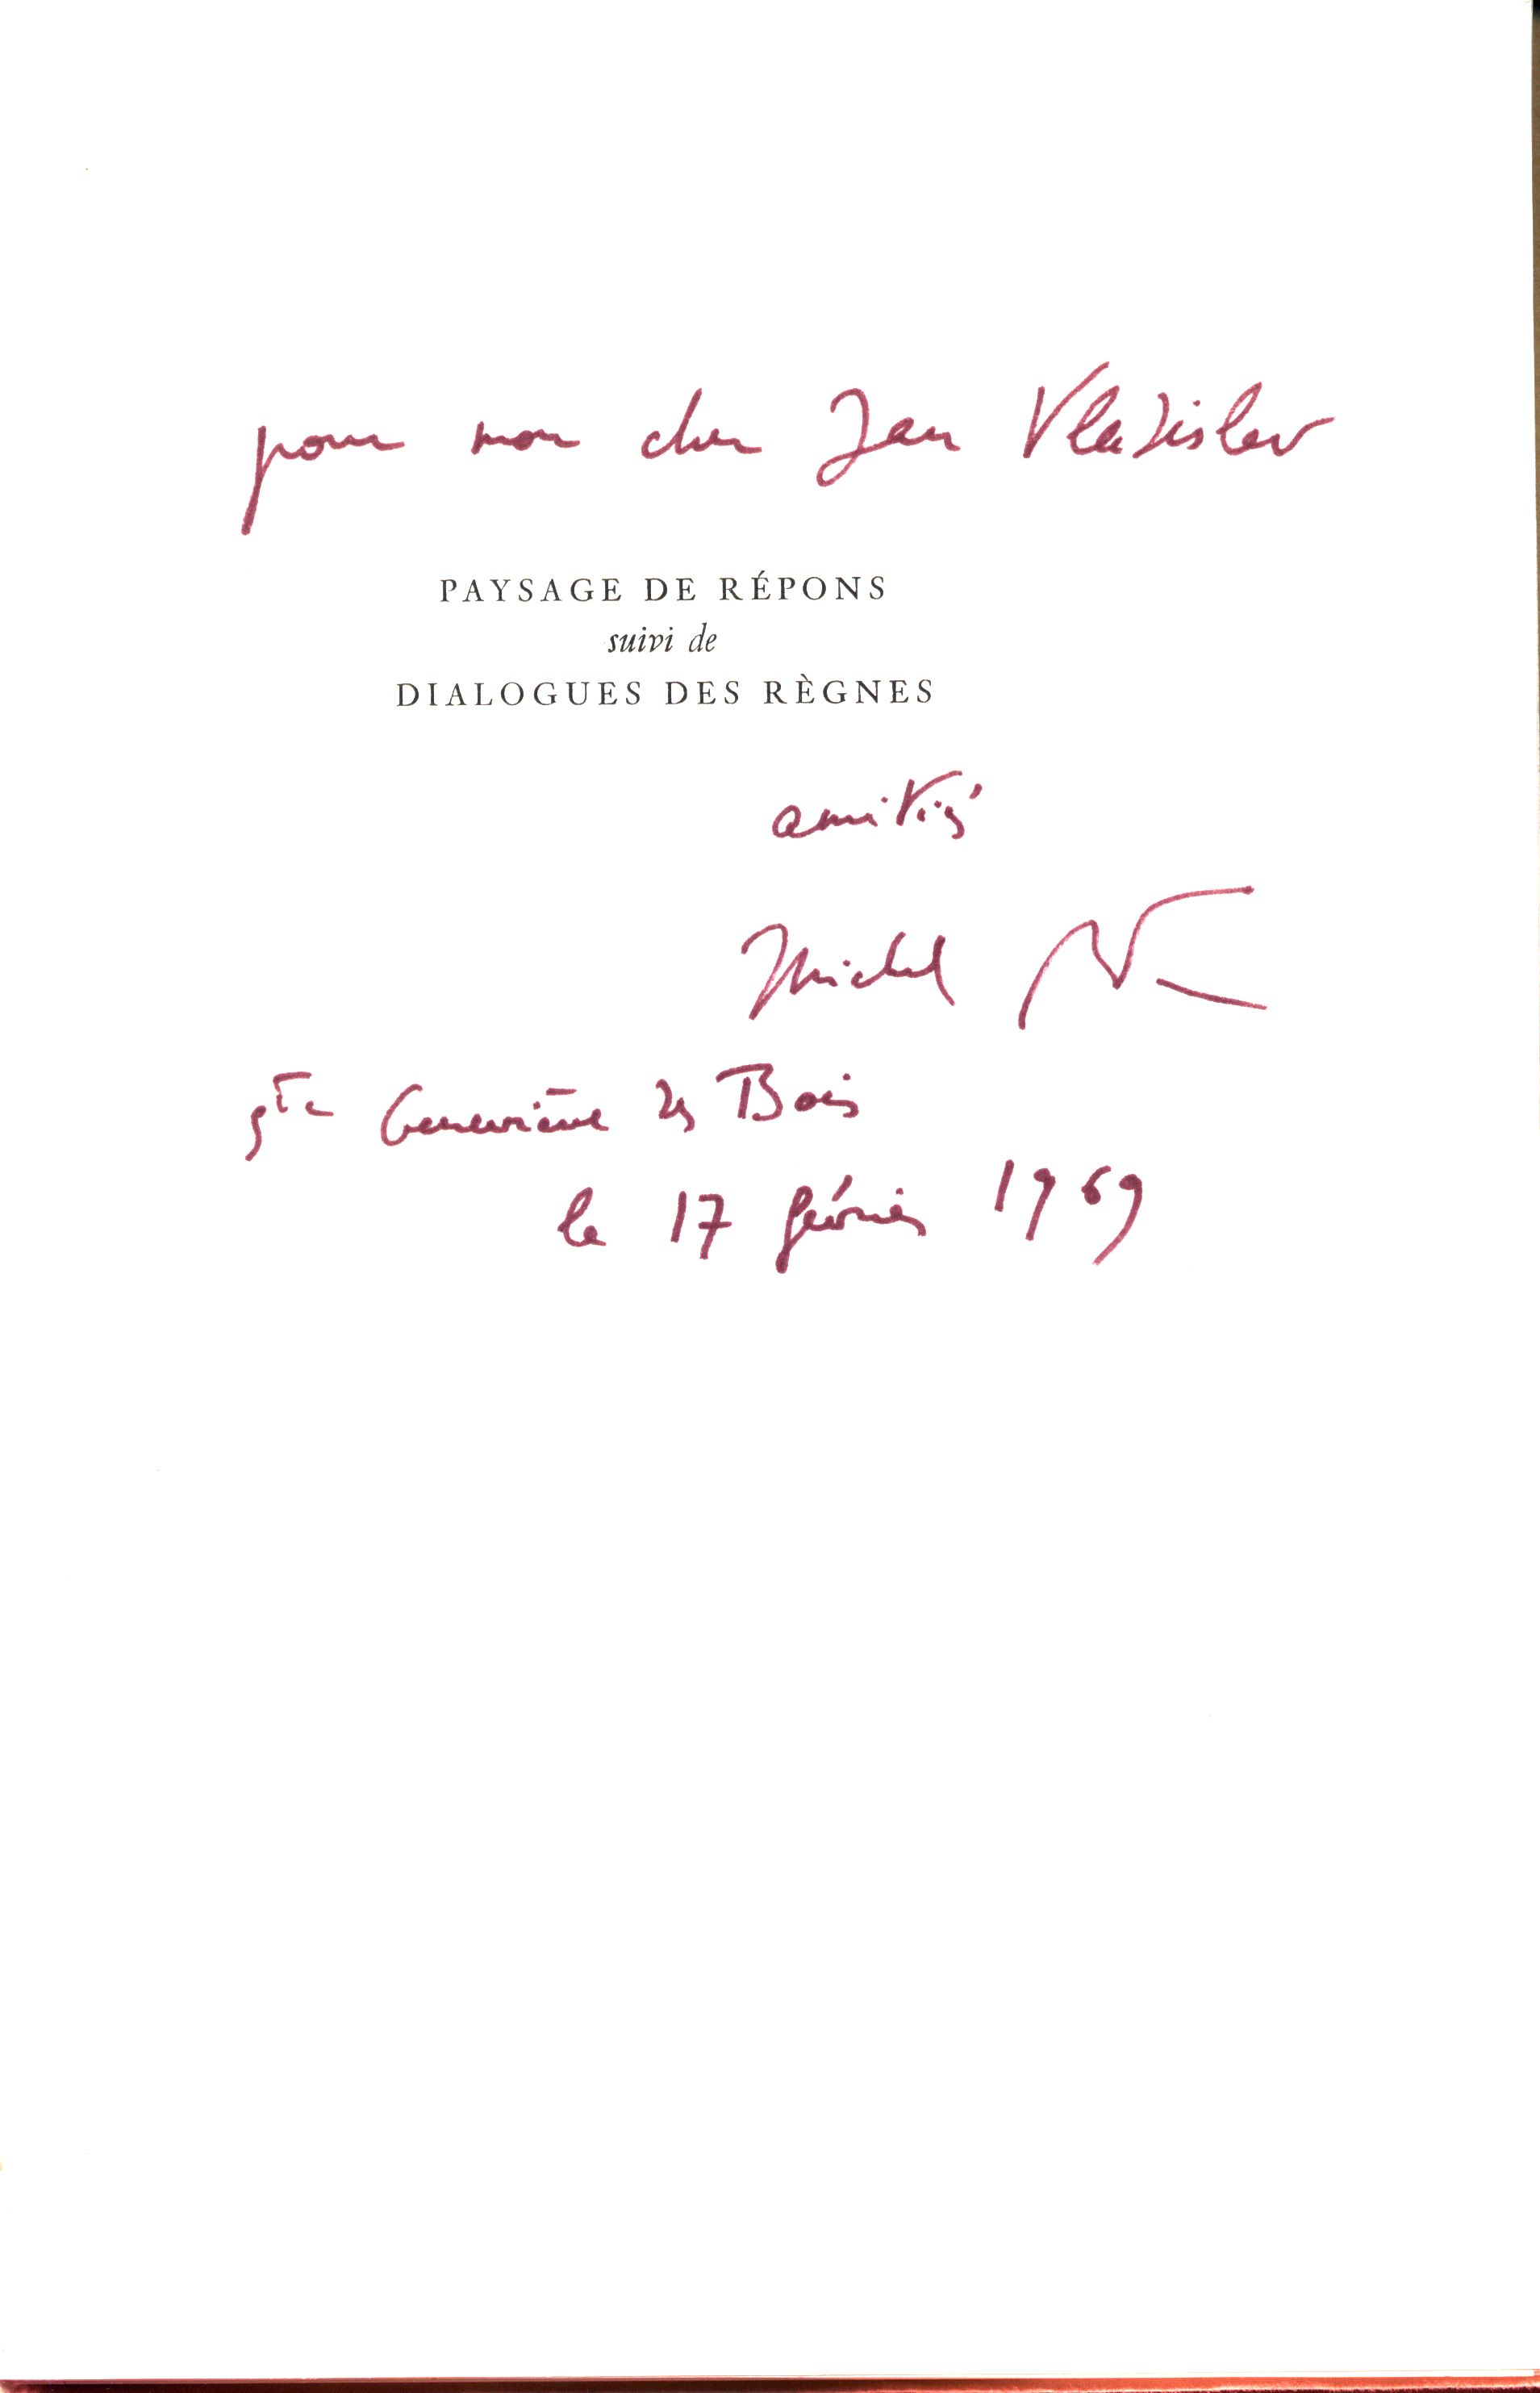 pour mon cher Jan Vladislav
PAYSAGE DE RÉPONS
suivi de
DIALOGUES DES RÈGNES
amitié
Michel
Ste Geneviève des Bois
le 17 février 1969